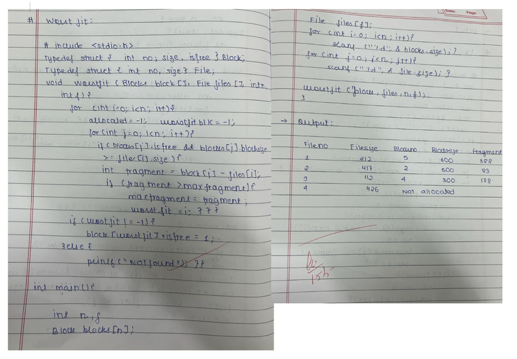 # Worst fit:
# include <stdio.h>
typedef struct { int no, size, isfree } Block;
typedef struct { int no, size } File;
void worstfit (Block block [], File files [], int n,
int f) {
for (int i=0; i<n; i++) {
allocated = -1; worstfitblk = -1;
for (int j=0; i<n; i++) {
if (blocks[j].isfree && blocks[j].blocksize
>= files[i].size) {
int fragment = block[j] - files[i];
if (fragment > maxfragment) {
maxfragment = fragment;
worstfit = i; } } }
if (worstfit != -1) {
block [worstfit].isfree = 1;
} else {
printf ("Not found"); } }
int main() {
int n, f
Block blocks[n];
File files[f];
for (int i=0; i<n; i++) {
scanf ("%d", & blocks.size); }
for (int j=0; j<n; j++) {
scanf ("%d", & file.size); }
worstfit (block, files, n, f);
}
→ Output:
File no Filesize Blockno Blocksize Fragment
1 412 5 600
2 417 2 500 83
3 112 4 300
4 426 Not allocated